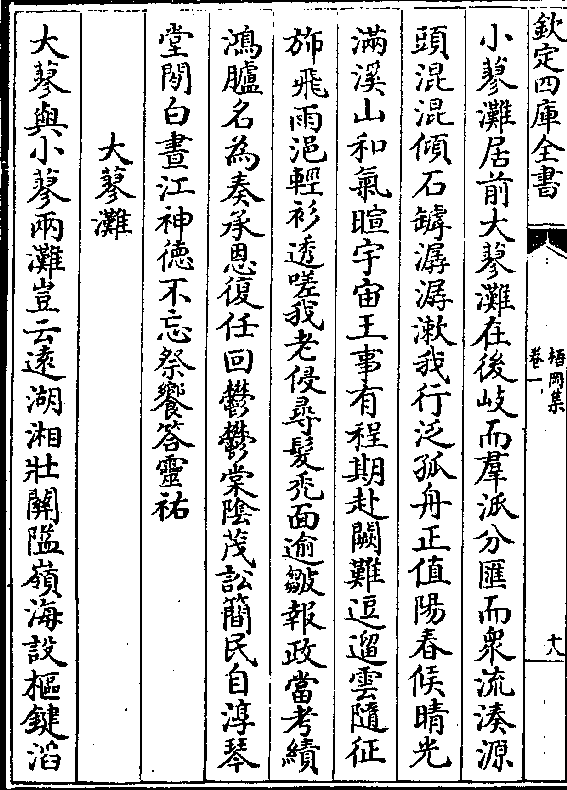 欽定四庫全書
梧岡集
卷一
十八
小蓼灘居前大蓼灘在後岐而羣派分匯而衆流湊源
頭混混傾石罅潺潺漱我行泛孤舟正值陽春候晴光
滿溪山和氣暄宇宙王事有程期赴闕難逗遛雲隨征
斾飛雨浥輕衫透嗟我老侵尋髮禿面逾皺報政當考績
鴻臚名為奏承恩復任回鬱鬱棠陰茂訟簡民自淳琴
堂閉白晝江神德不忘祭饗答靈祐
大蓼灘
大蓼與小蓼兩灘豈云遠湖湘壯關隘嶺海設樞鍵滔